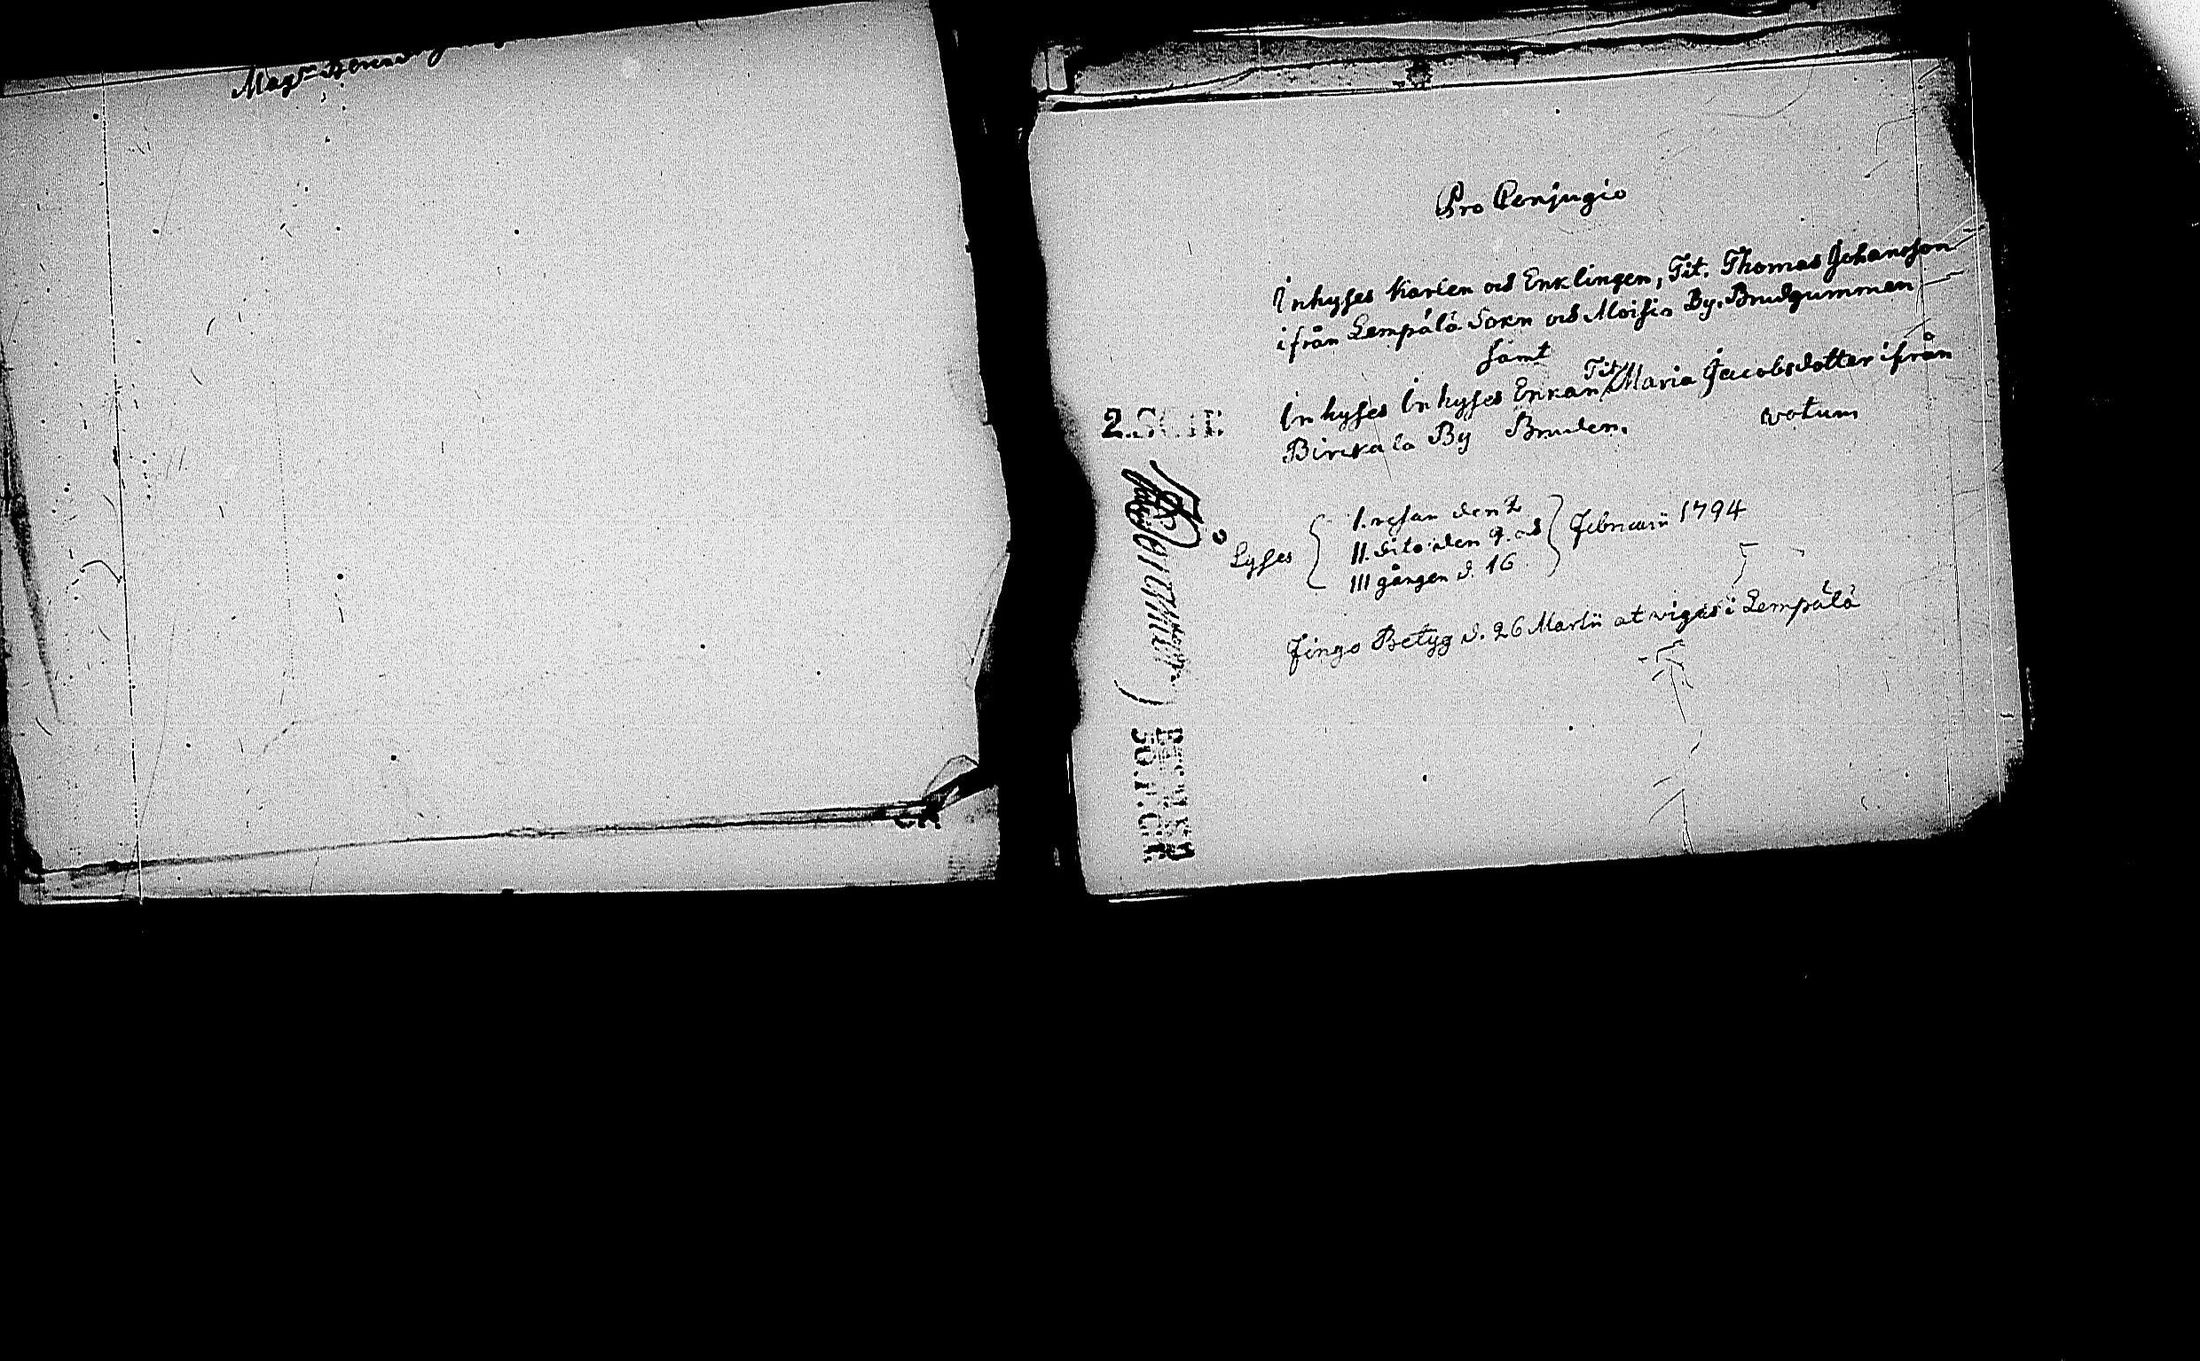 Pro Conjugio
Inhyses Karlen och Enklingen, Tit. Thomas Johansson
ifrån Lempälä Sokn och Moisio By. Brudgummen
samt
Inhyses Inhyses Enkan Tit. Maria Jacobsdotter ifrån
Birckala By Bruden. votum
Lyses
I. resan den 2
II. dito den 9. och
III gången d. 16
Februarii 1794
Fingo Betyg d. 26 Martii at vigas i Lempälä
2.